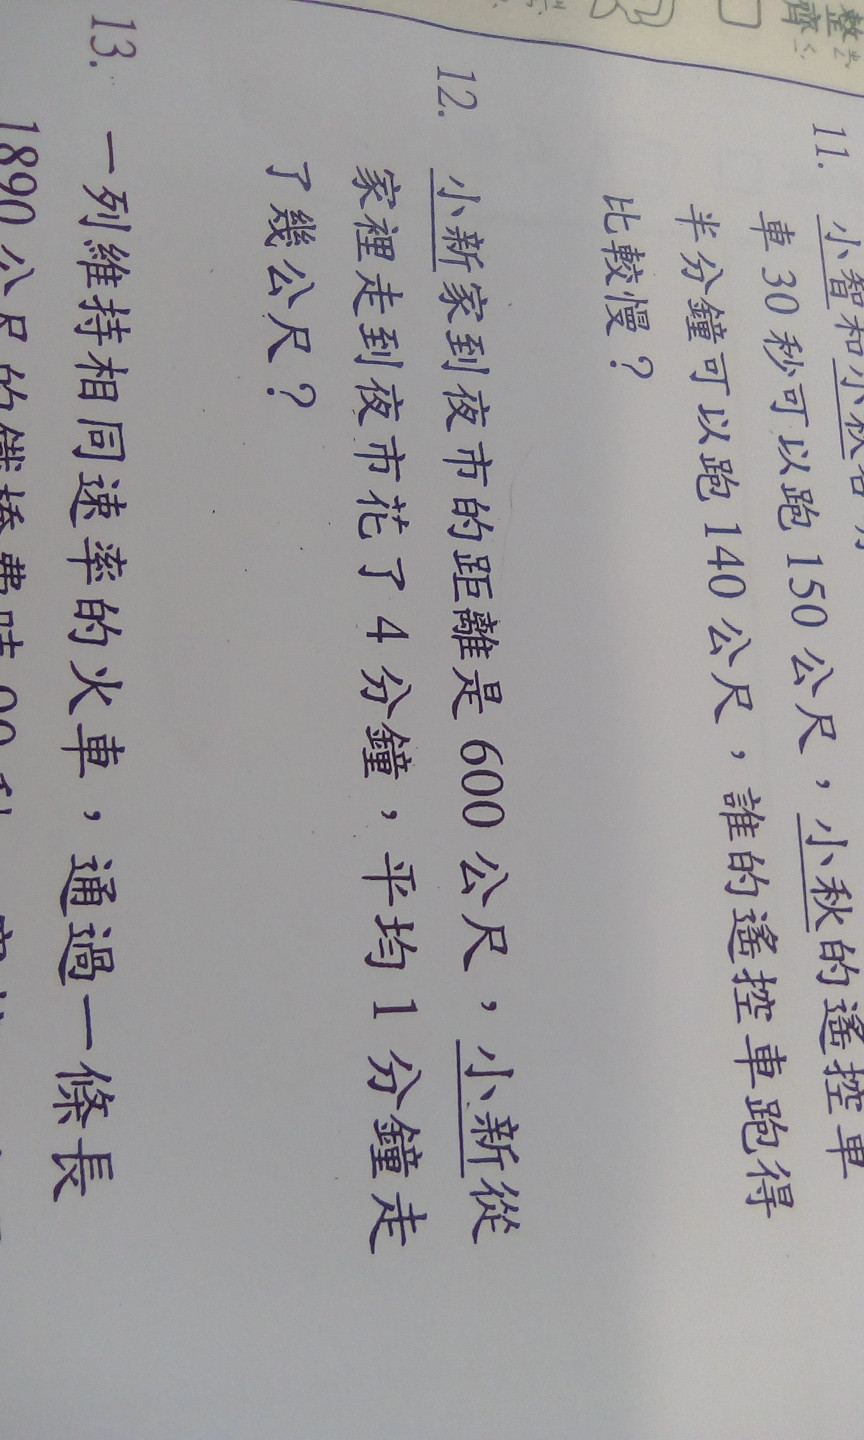 整齊
11. 小智和小秋各
車 30 秒可以跑 150 公尺，小秋的遙控車
半分鐘可以跑 140 公尺，誰的遙控車跑得
比較慢？
12. 小新家到夜市的距離是 600 公尺，小新從
家裡走到夜市花了 4 分鐘，平均 1 分鐘走
了幾公尺？
13. 一列維持相同速率的火車，通過一條長
1890 公尺的鐵橋費時